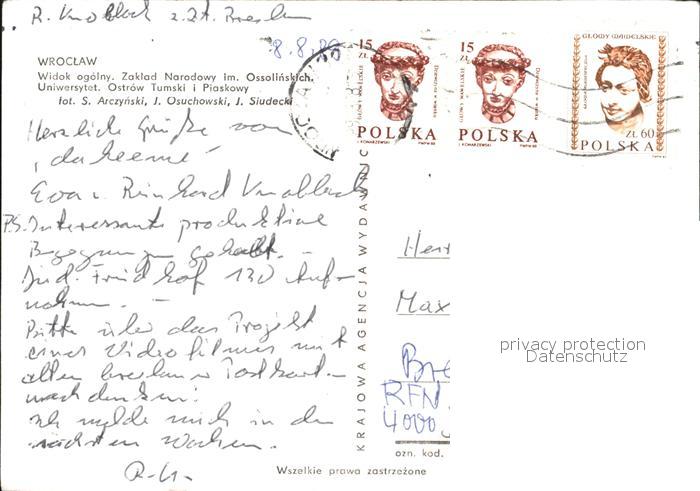 R. Knobloch z.Zt. Breslau
8.8.
WROCŁAW
Widok ogólny. Zakład Narodowy im. Ossolińskich.
Uniwersytet. Ostrów Tumski i Piaskowy
fot. S. Arczyński, J. Osuchowski, J. Siudecki
Herzliche Grüße von
"daheeme"
Eva u. Reinhard Knobloch
P.S. Interessante produktive
Begegnungen gehabt. –
Jüd. Friedhof 130 Auf-
nahmen. –
Bitte über das Projekt
eines Videofilmes mit
alten Breslauer Postkarten
nachdenken!
Ich melde mich in den
nächsten Wochen.
R.K.
KRAJOWA AGENCJA WYDAWNICZA
15
ZŁ
POLSKA
J. KONARZEWSKI
PWPW 85
15
ZŁ
POLSKA
J. KONARZEWSKI
PWPW 85
GŁOWY WAWELSKIE
ZŁ 60
POLSKA
Herr
Max
Bre
RFN
4000
ozn. kod.
privacy protection
Datenschutz
Wszelkie prawa zastrzeżone